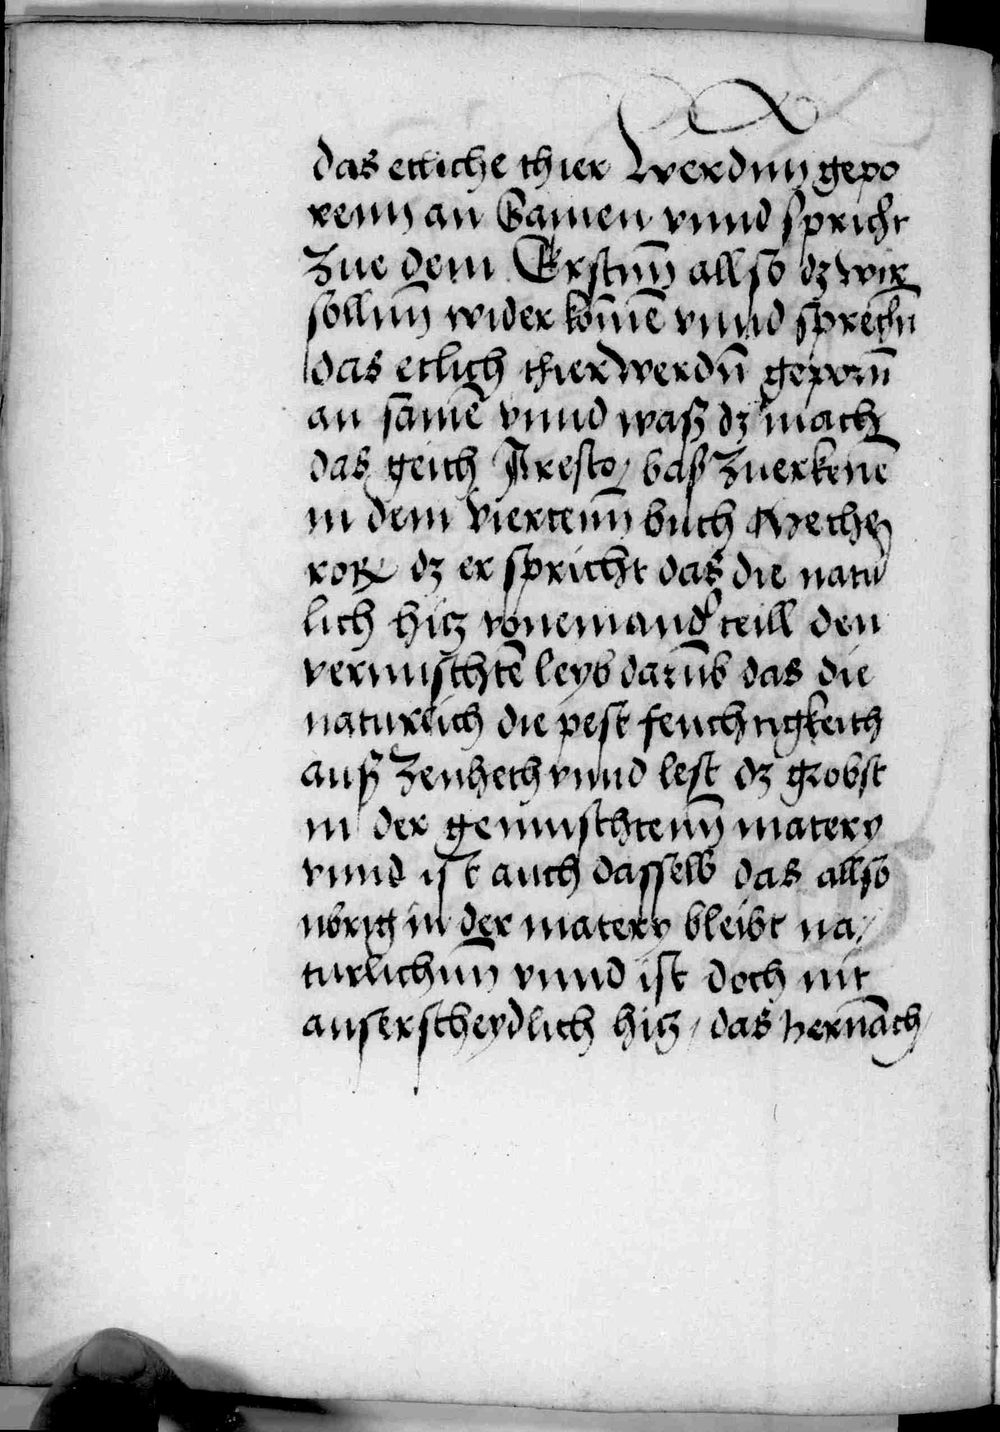 das etliche thier Werdnn gepo
renn an Samen vnnd spricht
Zue dem Erstnn̄ allso dz wir
sollnn̄ wider kōmē vnnd sprechn̄
das etlich thier werdn̄ geporn̄
an samē vnnd waß dz mach
das geich Aresto, baß zuerkenē
in dem viertenn̄ buch Methe
ror dz er spricht das die natu
lich hitz voneinand' teill den
vermischtē leyb darūb das die
naturlich die pest feuchtigkeith
auß Zeuheth vnnd lest dz grobst
in der gemischtenn̄ matery
vnnd ist auch dasselb das allso
ubrig in der matery bleibt na/
turlichnn̄ vnnd ist doch nit
auserscheydlich hitz, das hernāch